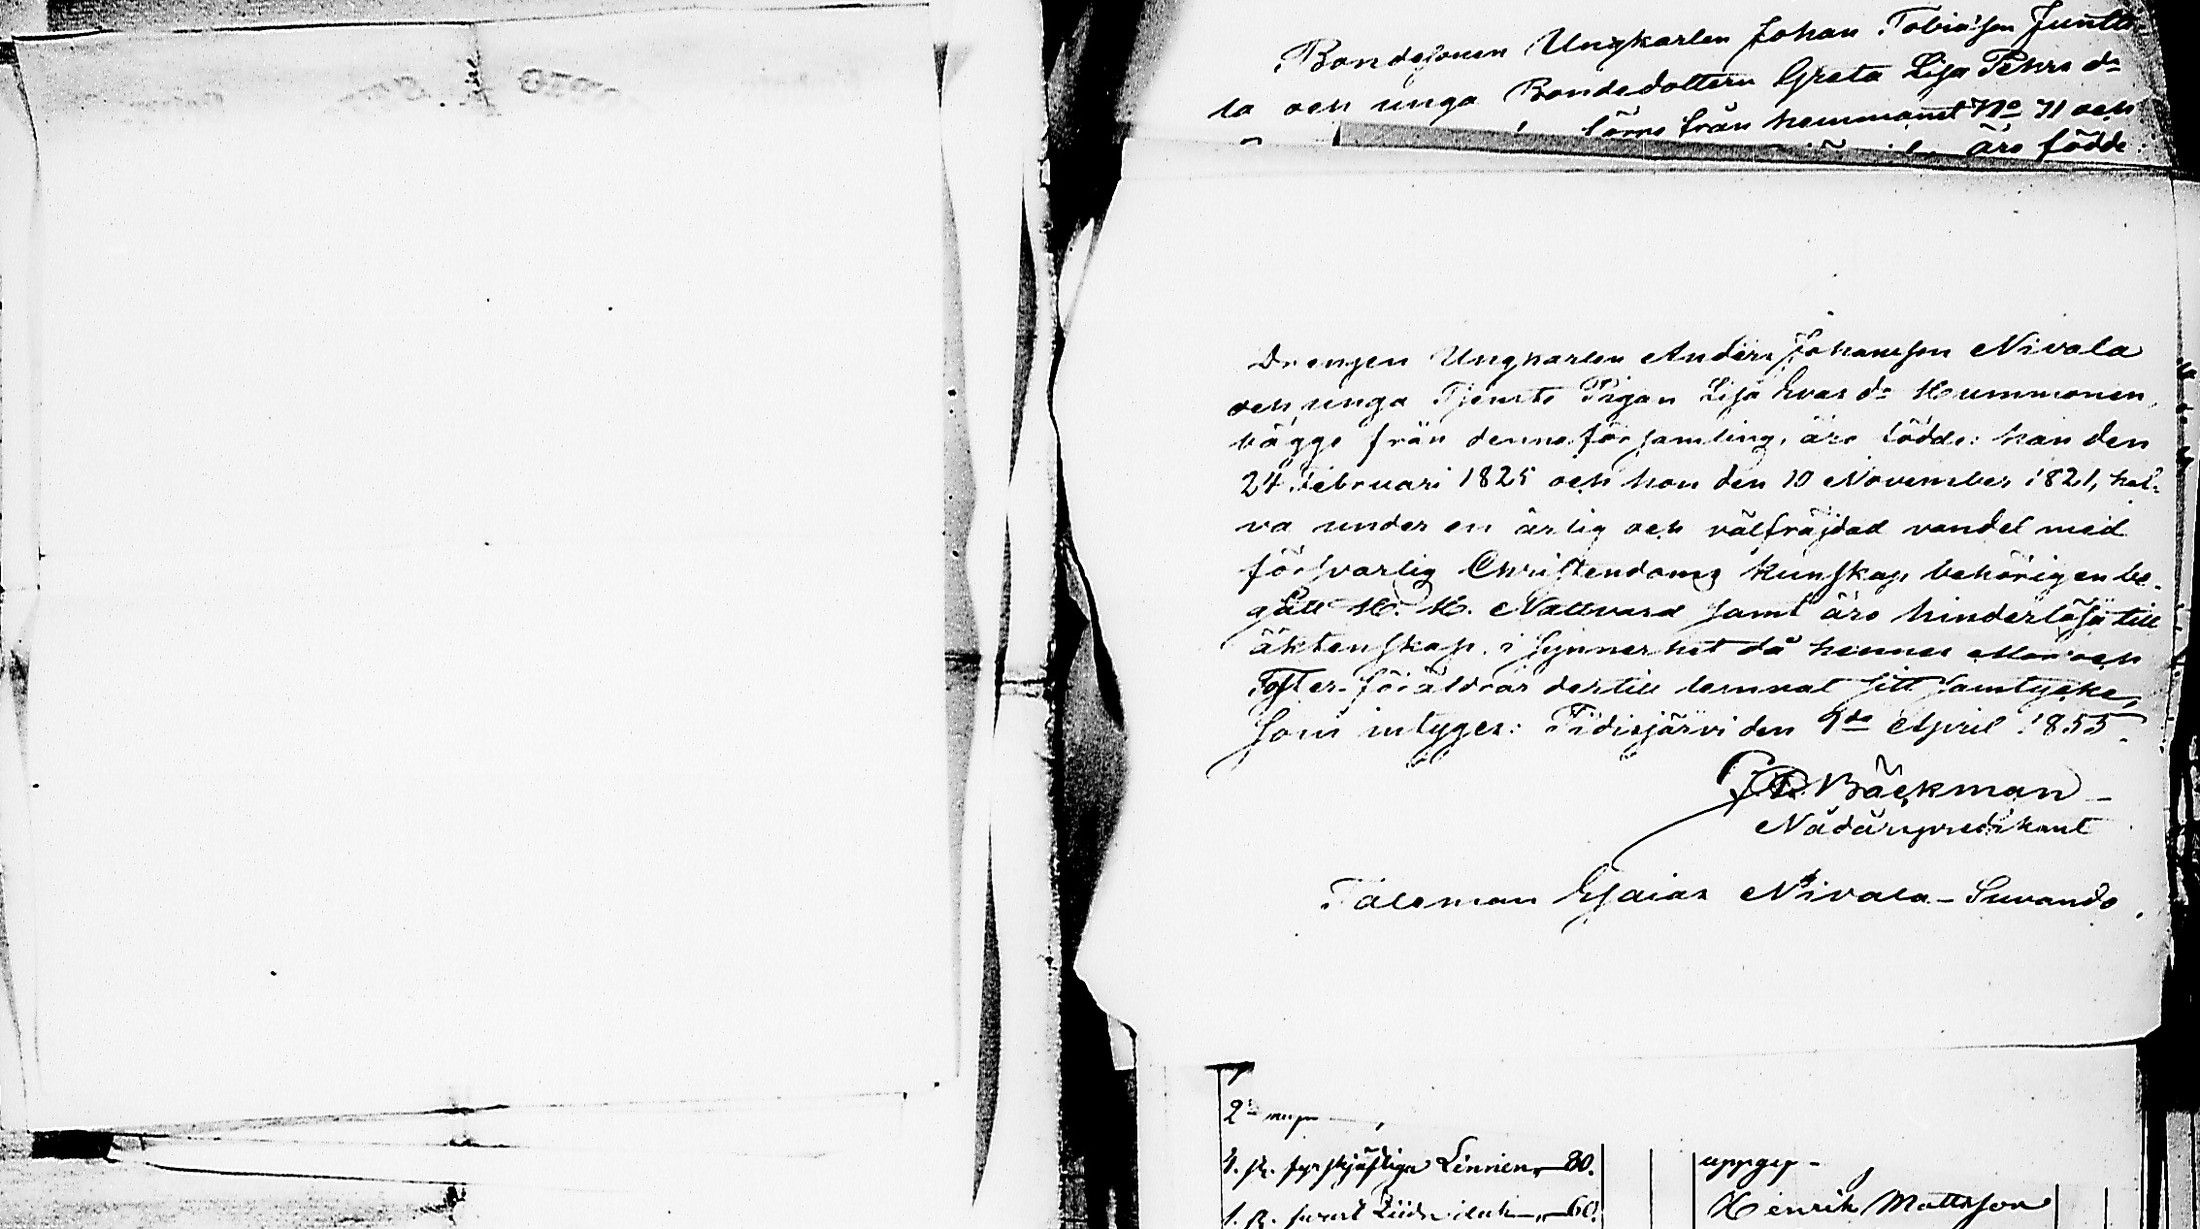 Bondesonen Ungkarlen Johan Tobiasson Juntti
la och unga Bondedottern Greta Lisa Pehrs dr
från hemmanet No 71 och
äro födde
Drengen Ungkarlen Anders Johansson Nivala
och unga Tjenste Pigan Lisa Evas dr Hummonen,
bägge från denna församling, äro födde: han den
24 Februari 1825 och hon den 10 November 1821, haf-
va under en ärlig och välfräjdad vandel med
försvarlig Christendoms kunskap behörigen be-
gått H. H. Nattvard samt äro hinderlösa till
äktenskap, i synnerhet då hennes Mor och
Foster-föräldrar dertill lemnat sitt samtycke,
som intyges: Pidisjärvi den 9de April 1855.
Bäckman
Nådårspredikant
Taleman Esaias Nivala-Suvando
2
1. st. fyrskäftiga Linnen 80. uppgep-
1. st. svart 60. Henrik Mattsson